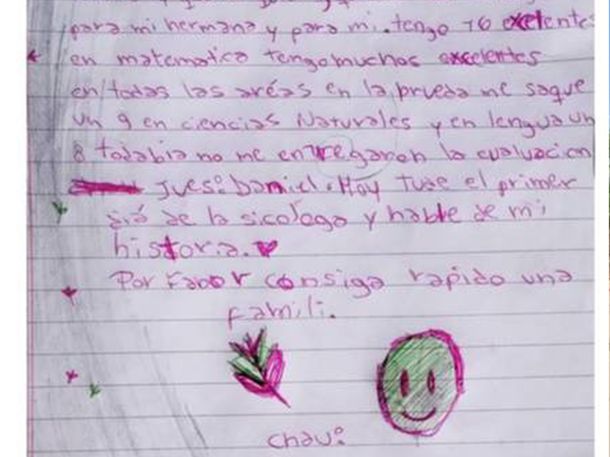 para mi hermana y para mi. tengo 16 exelentes
en matematica tengo muchos excelentes
en todas las aréas en la prueba me saque
un 9 en ciencias Naturales y en lengua un
8 todabia no me entregaron la evaluacion
Jues: Daniel. Hoy tuve el primer
diá de la sicologa y hable de mi
historia.
Por Favor consiga rapido una
famili.
chau: